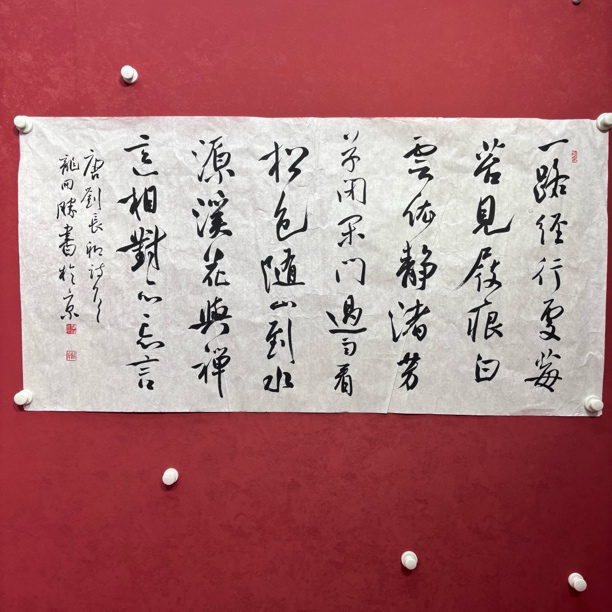 一路經行處莓
苔見履痕白
雲依靜渚芳
草閉閑門過雨看
松色隨山到水
源溪花與禪
意相對亦忘言
唐劉長卿詩
龍田勝書於京